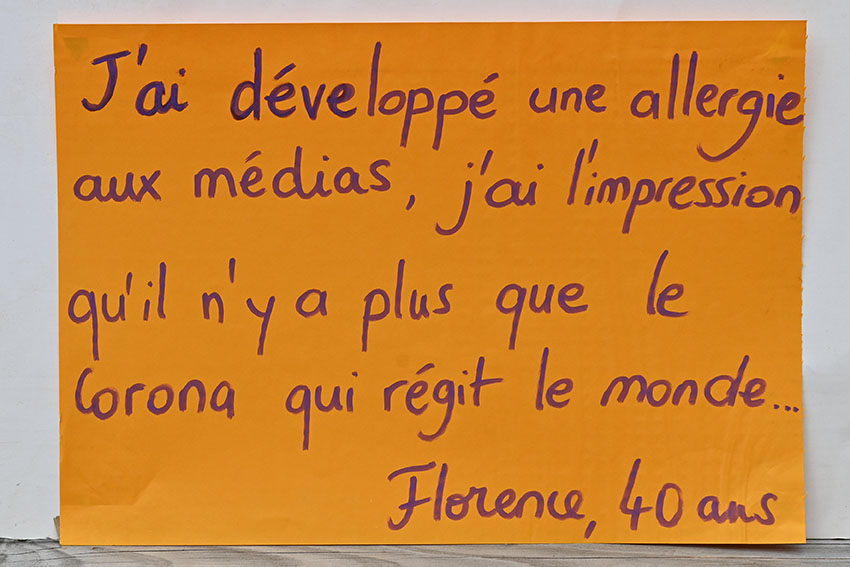 J'ai développé une allergie
aux médias, j'ai l'impression
qu'il n'y a plus que le
Corona qui régit le monde...
Florence, 40 ans